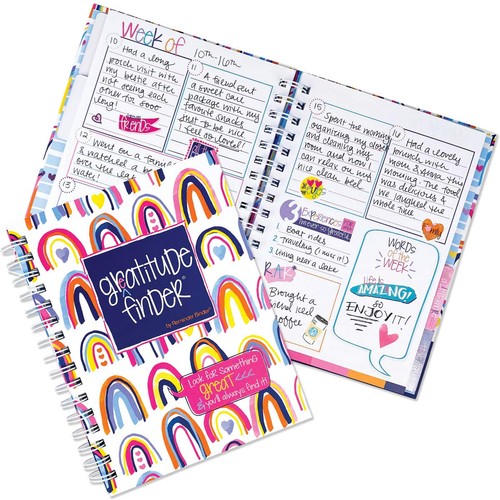 Week of 10th-16th
10
Had a long
porch visit with
my bestie after
not seeing each
other for sooo
long!
friends
11
A friend sent
a sweet care
package with my
favorite snacks
just to be nice
I feel so loved!
12
Went on a
& watched a
over the lake
13
15
Spent the morning
organizing my closet
and cleaning my
room and now I
can relax on my
nice clean bed
16
Had a lovely
brunch with
mom & this
morning. The food
was delicious &
we laughed the
whole time
3 Experiences
forever so grateful
1. Boat rides
2. Traveling (I miss it!)
3. Living near a lake
R.A.K
Brought a
friend iced
coffee
WORDS
OF THE
WEEK
life is
AMAZING!
so
ENJOY IT!
gratitude
finder®
by Reminder Binder®
Look for something
great <<<
& you'll always find it!